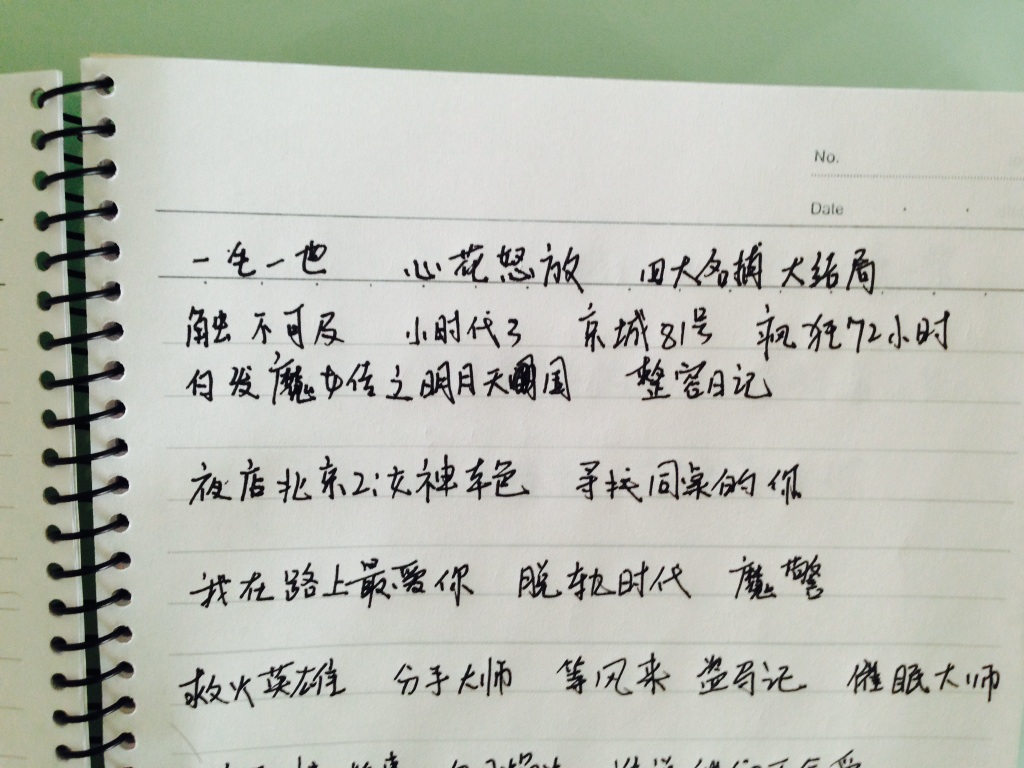 No.
Date
一生一世 心花怒放 四大名捕大结局
触不可及 小时代3 京城81号 疯狂72小时
白发魔女传之明月天国 整容日记
夜店北京2:女神车色 寻找同桌的你
我在路上最爱你 脱轨时代 魔警
救火英雄 分手大师 等风来 盗马记 催眠大师